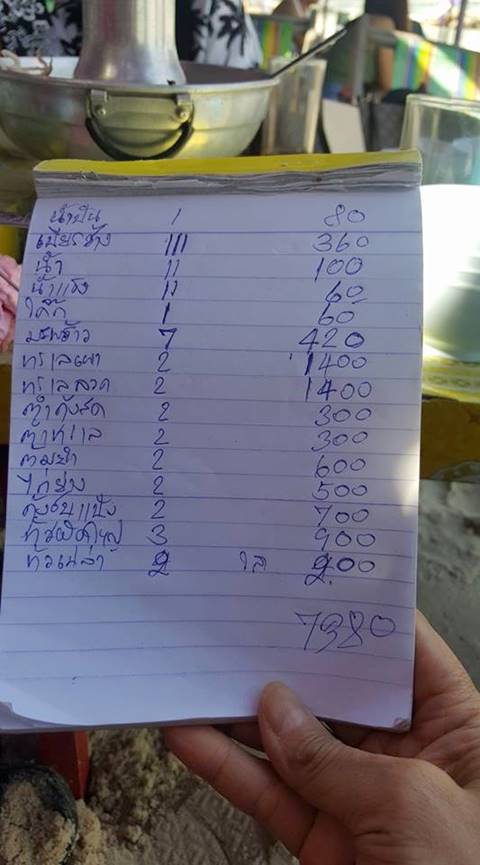 น้ำปั่น 1 80
เบียร์ช้าง III 360
น้ำ II 100
น้ำแข็ง II 60
โค๊ก 1 60
มะพร้าว 7 420
ทะเลเผา 2 1400
ทะเลลวก 2 1400
ตำกุ้งสด 2 300
ตำทะเล 2 300
ต้มยำ 2 600
ไก่ย่าง 2 500
กุ้งชุบแป้ง 2 700
3 900
ข้าวเปล่า 2 โถ 200
7380